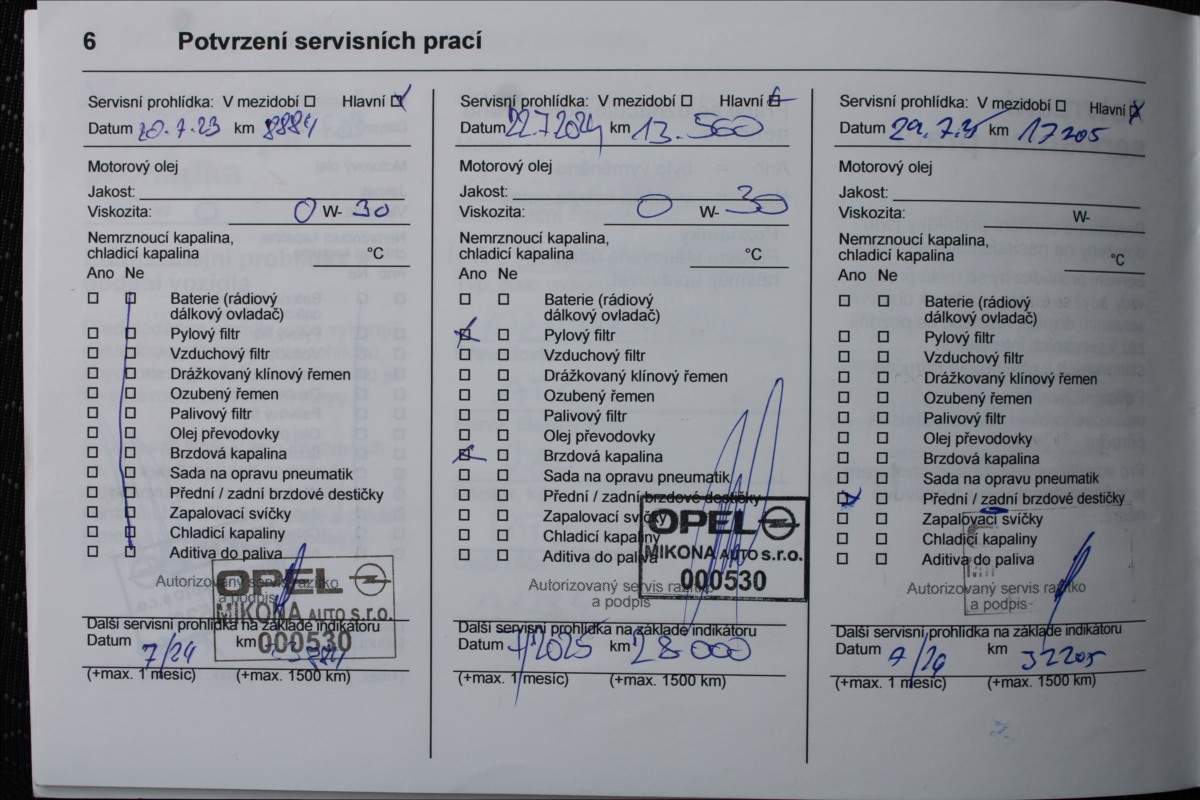 6 Potvrzení servisních prací
Servisní prohlídka: V mezidobí Hlavní
Datum 20.7.23 km 8884
Motorový olej
Jakost:
Viskozita: 0 W- 30
Nemrznoucí kapalina,
chladicí kapalina °C
Ano Ne
Baterie (rádiový
dálkový ovladač)
Pylový filtr
Vzduchový filtr
Drážkovaný klínový řemen
Ozubený řemen
Palivový filtr
Olej převodovky
Brzdová kapalina
Sada na opravu pneumatik
Přední / zadní brzdové destičky
Zapalovací svíčky
Chladicí kapaliny
Aditiva do paliva
Autorizovaný servis razítko
a podpis
OPEL
MIKONA AUTO s.r.o.
000530
Další servisní prohlídka na základě indikátoru
Datum 7/24 km
(+max. 1 měsíc) (+max. 1500 km)
Servisní prohlídka: V mezidobí Hlavní
Datum 22.7.2024 km 13.560
Motorový olej
Jakost:
Viskozita: 0 W- 30
Nemrznoucí kapalina,
chladicí kapalina °C
Ano Ne
Baterie (rádiový
dálkový ovladač)
Pylový filtr
Vzduchový filtr
Drážkovaný klínový řemen
Ozubený řemen
Palivový filtr
Olej převodovky
Brzdová kapalina
Sada na opravu pneumatik
Přední / zadní brzdové destičky
Zapalovací svíčky
Chladicí kapaliny
Aditiva do paliva
OPEL
MIKONA AUTO s.r.o.
000530
Autorizovaný servis razítko
a podpis
Další servisní prohlídka na základě indikátoru
Datum 7/2025 km 28000
(+max. 1 měsíc) (+max. 1500 km)
Servisní prohlídka: V mezidobí Hlavní
Datum 29.7.25 km 17205
Motorový olej
Jakost:
Viskozita: W-
Nemrznoucí kapalina,
chladicí kapalina °C
Ano Ne
Baterie (rádiový
dálkový ovladač)
Pylový filtr
Vzduchový filtr
Drážkovaný klínový řemen
Ozubený řemen
Palivový filtr
Olej převodovky
Brzdová kapalina
Sada na opravu pneumatik
Přední / zadní brzdové destičky
Zapalovací svíčky
Chladicí kapaliny
Aditiva do paliva
Autorizovaný servis razítko
a podpis
Další servisní prohlídka na základě indikátoru
Datum 7/26 km 32205
(+max. 1 měsíc) (+max. 1500 km)